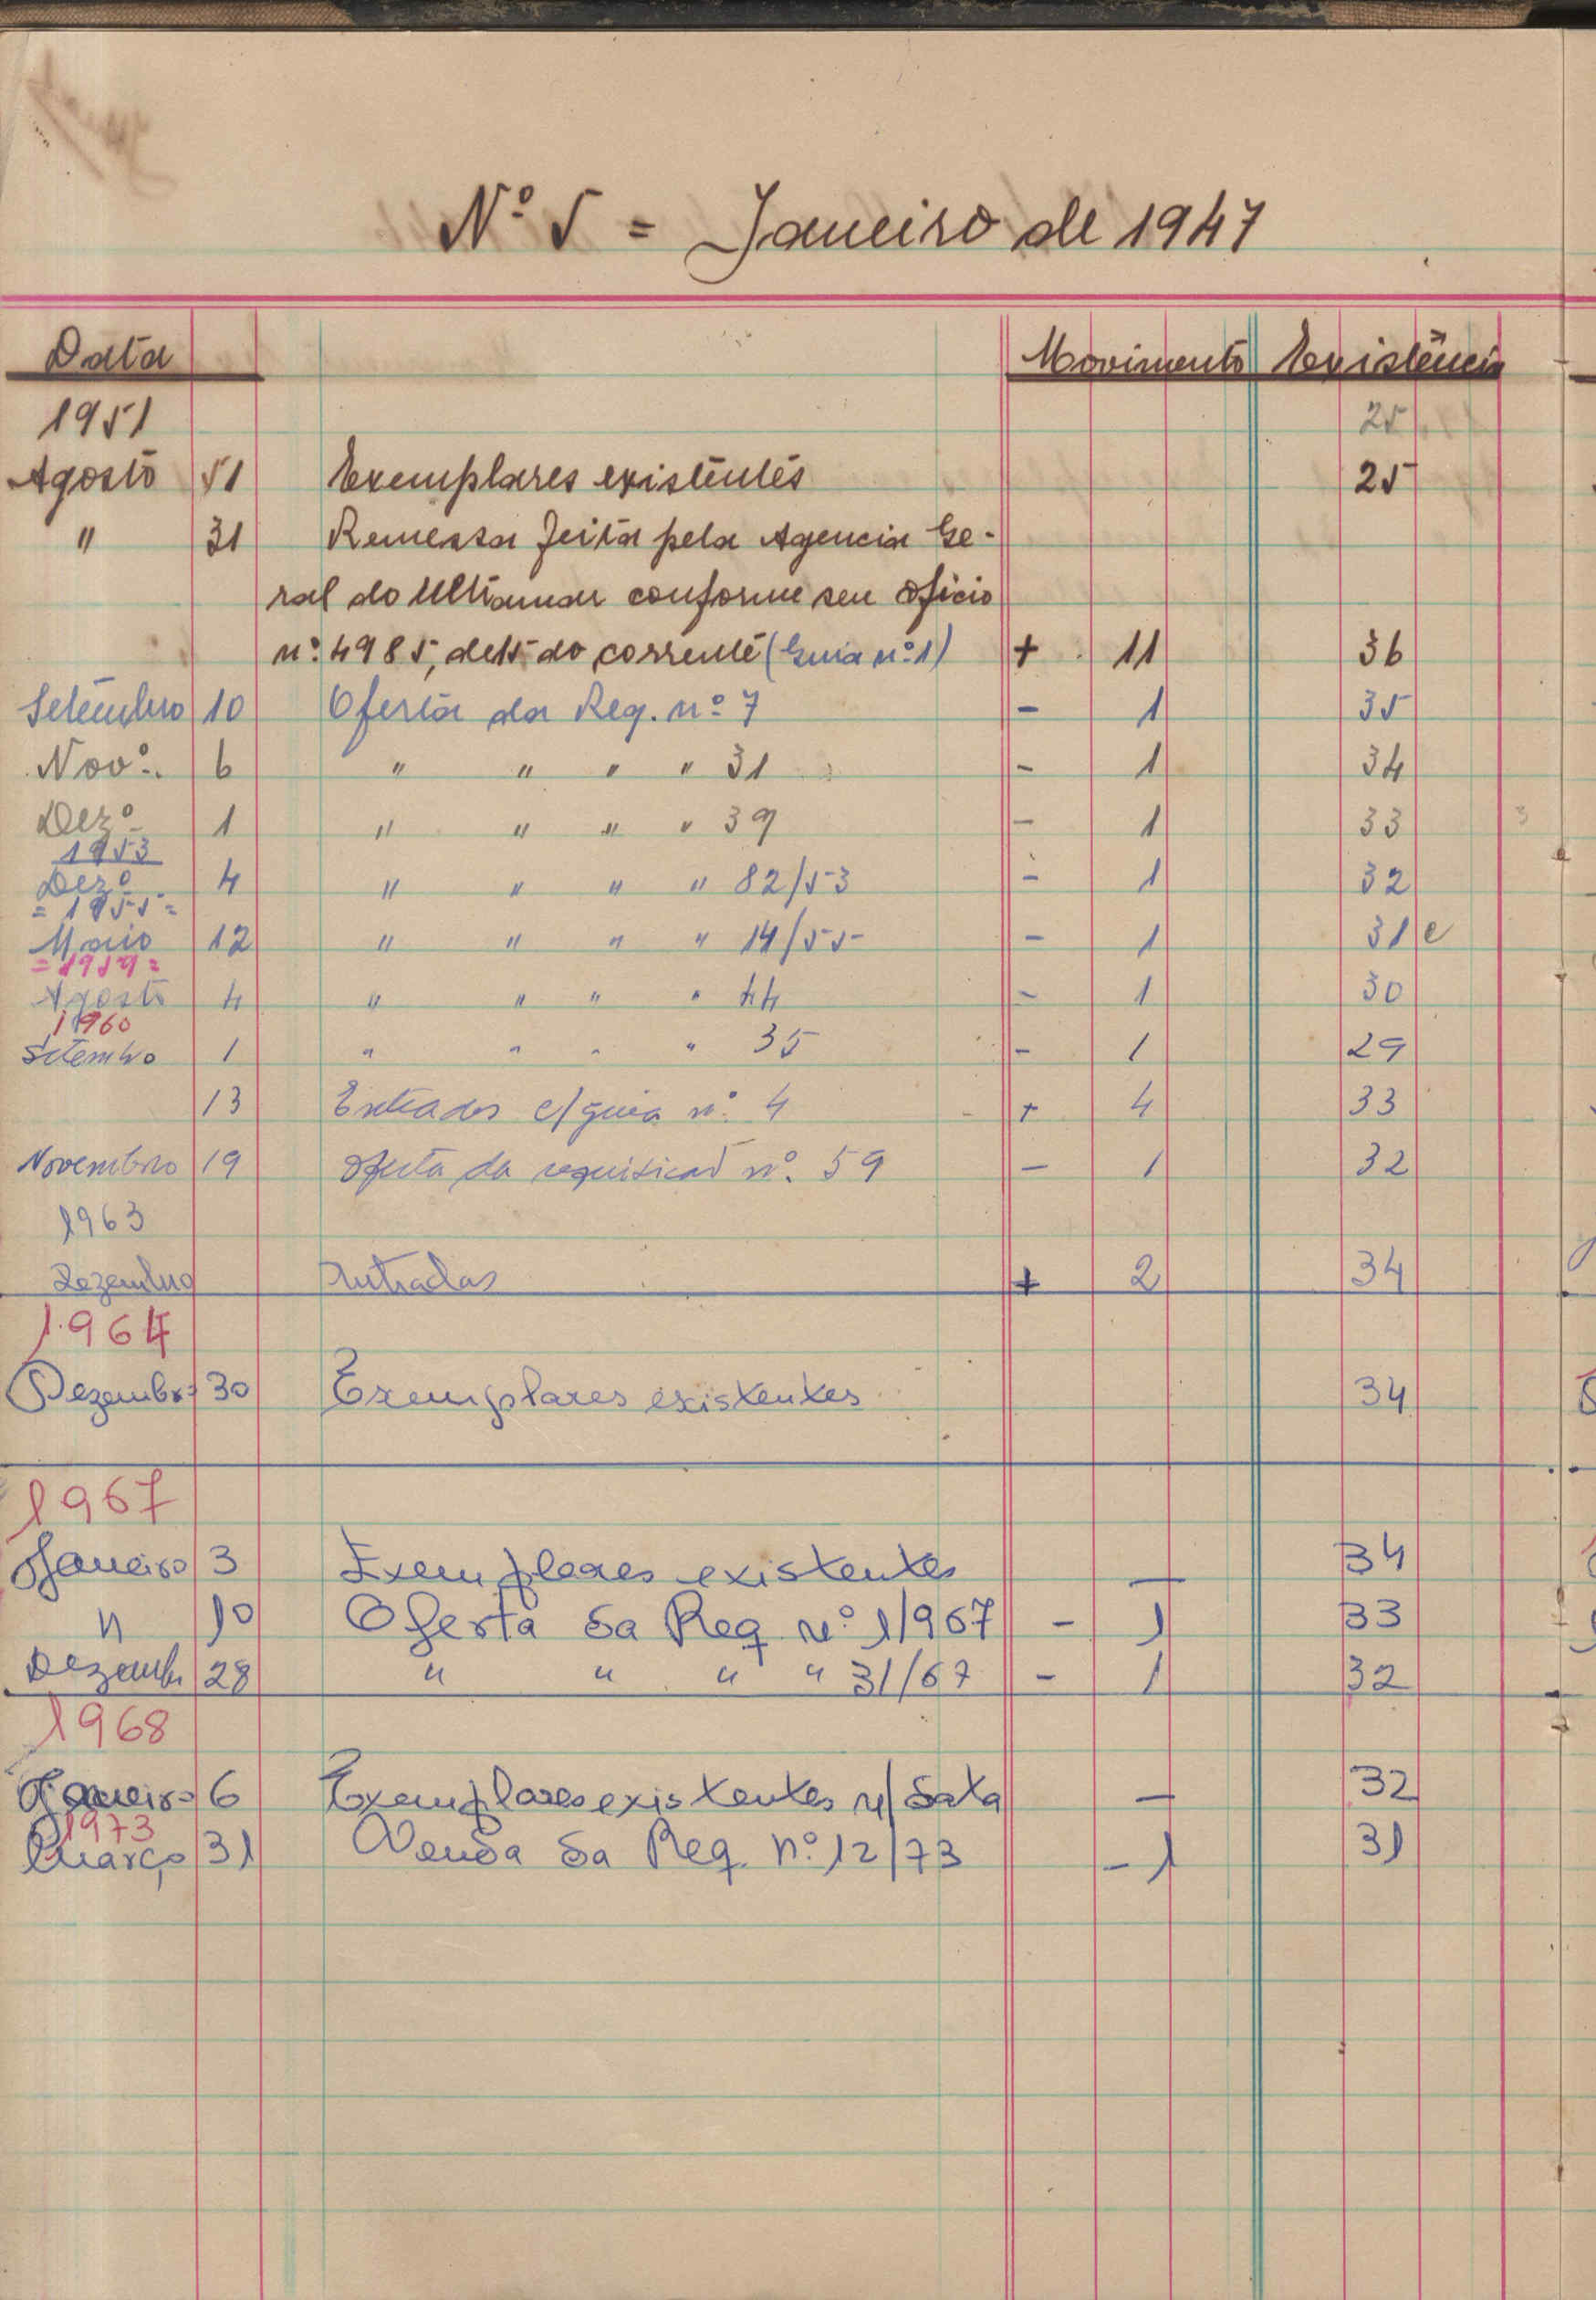 Nº 5 = Janeiro de 1947
Data Movimento Existência
1951 25
Agosto 51 Exemplares existentes 25
" 31 Remessa feita pela Agencia Ge-
ral do Ultramar conforme seu oficio
nº 4985, de 15 do corrente (Guia nº 1) + 11 36
Setembro 10 Oferta da Req. nº 7 - 1 35
Novº. 6 " " " " 31 - 1 34
Dezº 1 " " " " 39 - 1 33
1953
Dezº 4 " " " " 82/53 - 1 32
= 1955 =
Maio 12 " " " " 14/55 - 1 31 e
= 1959 =
Agosto 4 " " " " 44 - 1 30
1960
Setembro 1 " " " " 35 - 1 29
13 Entrados c/ guia nº 4 + 4 33
Novembro 19 Oferta da requisição nº. 59 - 1 32
1963
Dezembro Entradas + 2 34
1964
Dezembro 30 Exemplares existentes 34
1967
Janeiro 3 Exemplares existentes — 34
" 10 Oferta da Req. nº 1/967 - 1 33
Dezemb. 28 " " " " 31/67 - 1 32
1968
Janeiro 6 Exemplares existentes n/data — 32
1973
Março 31 Venda da Req. nº 12/73 - 1 31